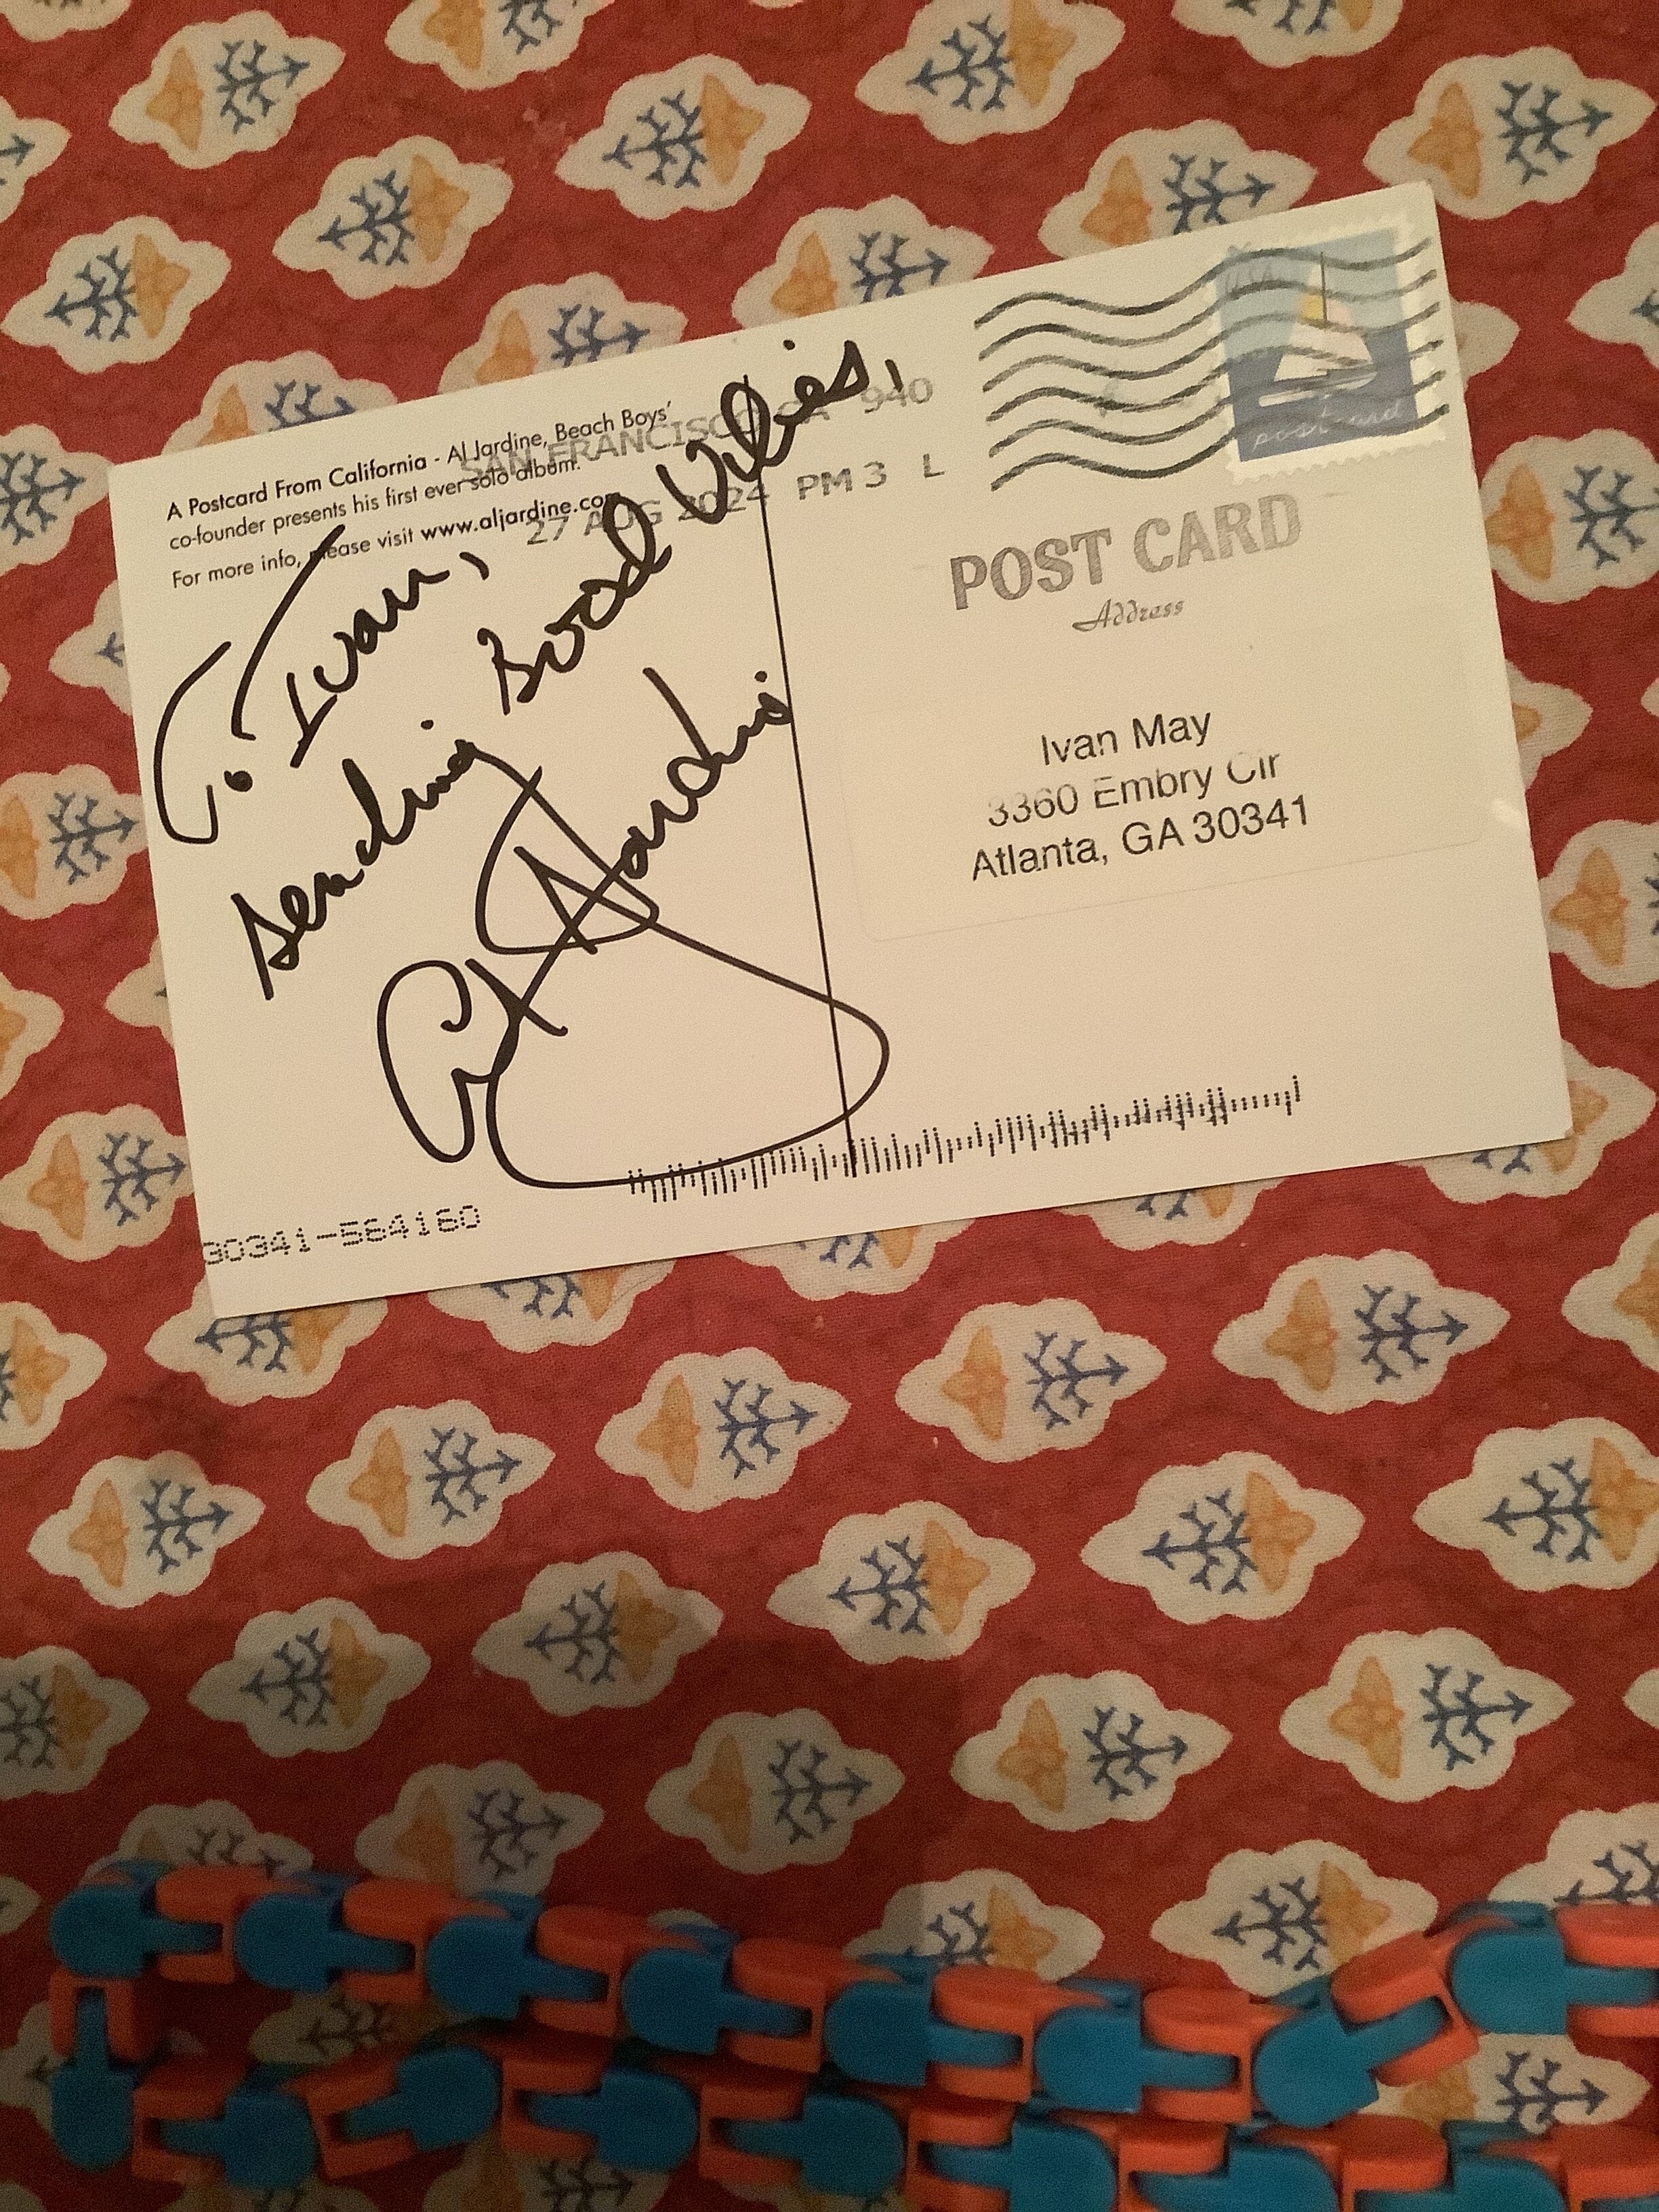 A Postcard From California - Al Jardine, Beach Boys'
co-founder presents his first ever solo album.
For more info, please visit www.aljardine.com
SAN FRANCISCO CA 940
27 AUG 2024 PM 3 L
To Ivan,
sending Good Vibes,
Al Jardine
USA
postcard
POST CARD
Address
Ivan May
3360 Embry Cir
Atlanta, GA 30341
30341-564160